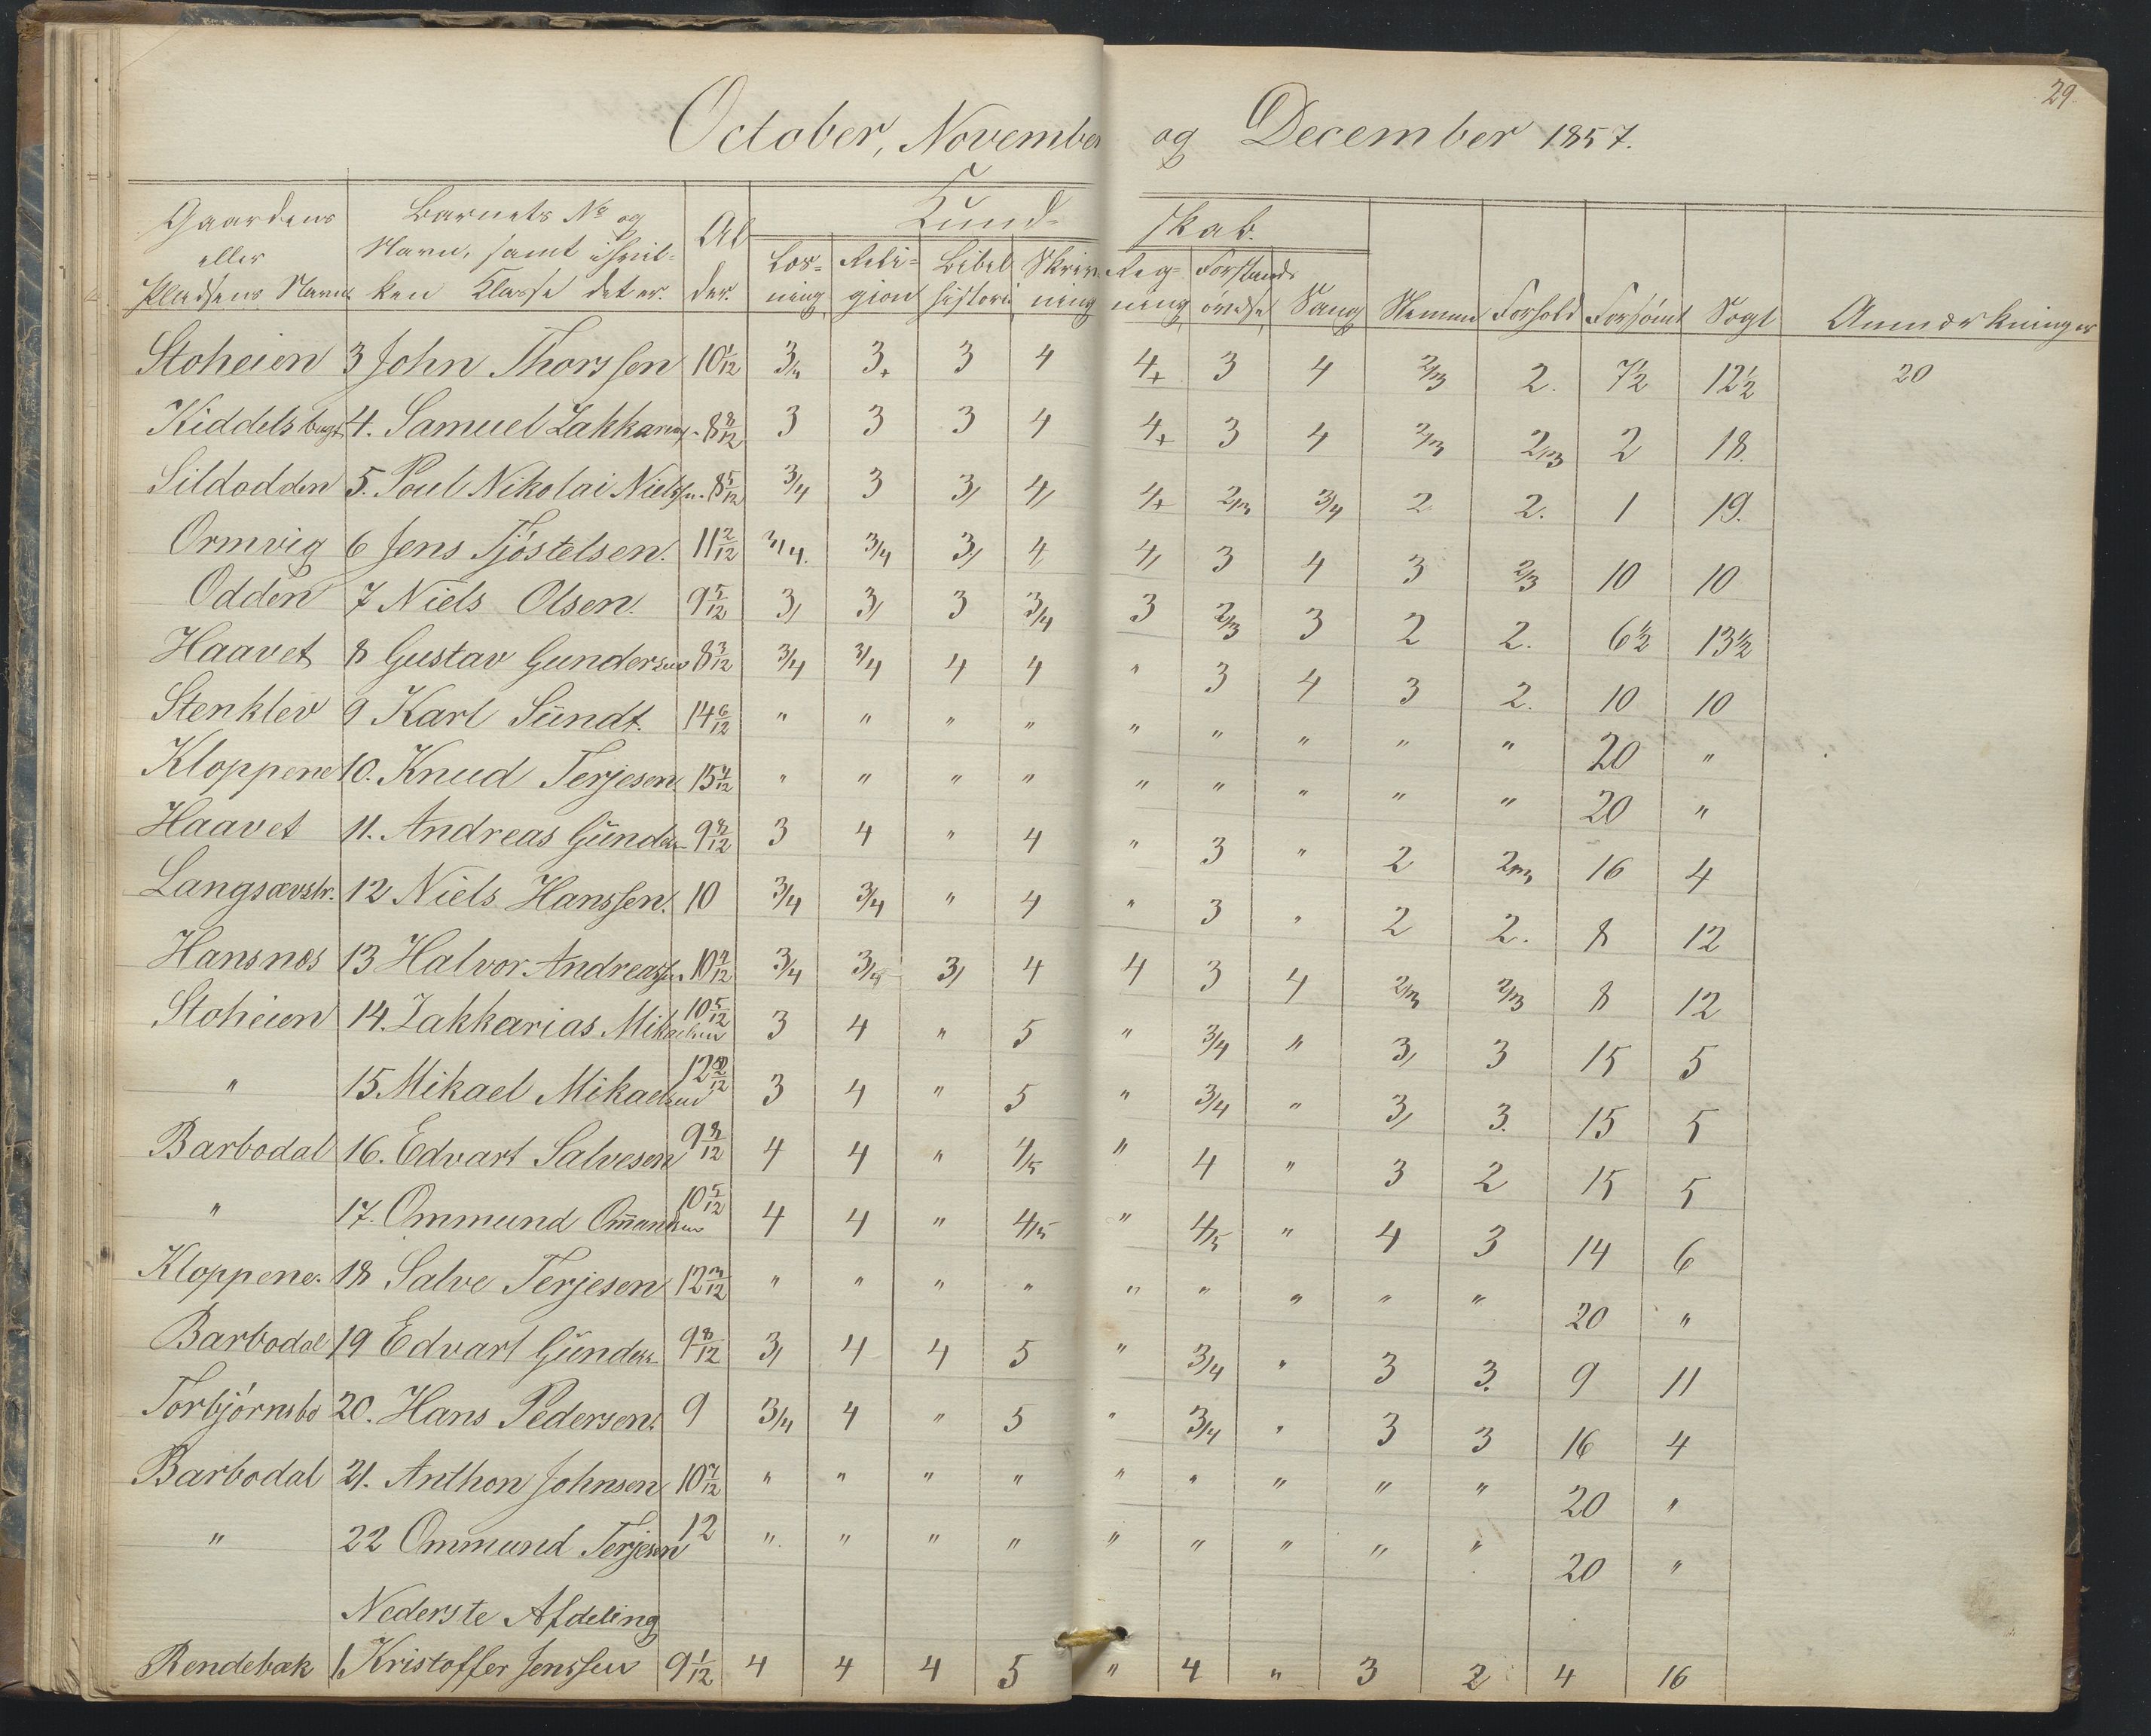 29.
October, November og December 1857.
Gaardens eller Pladsens Navn | Barnets No og Navn, samt i hvilken Klasse det er. | Alder. | Kundskab. | Læsning | Religion | Bibelhistorie | Skrivning | Regning | Forstandsøvelse | Sang | Nemme | Forhold | Forsømt | Søgt | Anmærkninger
Stoheien 3 John Thorssen 10 1/12 3/4 3+ 3 4 4+ 3 4 2/3 2. 7 1/2 12 1/2 20
Kiddelsbugt 4. Samuel Zakkarias. 8 8/12 3 3 3 4 4+ 3 4 2/3 2/3 2 18.
Sildodden 5. Poul Nikolai Nielss. 8 5/12 3/4 3 3/ 4/ 4+ 2/3 3/4 2 2. 1 19.
Ormvig 6 Jens Tjöstelsen. 11 2/12 3/4. 3/4 3/ 4 4/ 3 4 3 2/3 10 10
Odden 7 Niels Olsen. 9 5/12 3/ 3/ 3 3/4 3 2/3 3 2 2. 6 1/2 13 1/2
Haavet 8 Gustav Gundersen 8 3/12 3/4 3/4 4 4 " 3 4 3 2. 10 10
Stenklev 9 Karl Sündt. 14 6/12 " " " " " " " " " 20 "
Kloppene 10. Knud Terjesen. 15 4/12 " " " " " " " " " 20 "
Haavet 11. Andreas Günders. 9 8/12 3 4 " 4 " 3 " 2 2/3 16 4
Langsævstr. 12 Niels Hanssen. 10 3/4 3/4 " 4 " 3 " 2 2. 8 12
Hansnæs 13 Halvor Andreass. 10 4/12 3/4 3/4 3/ 4 4 3 4 2/3 2/3 8 12
Stoheien 14. Zakkarias Mikaelsen 10 5/12 3 4 " 5 " 3/4 " 3/ 3 15 5
" 15 Mikael Mikaelsen 3 4 " 5 " 3/4 " 3/ 3. 15 5
Barbodal 16. Edvart Salvesen 9 8/12 4 4 " 4/5 " 4 " 3 2 15 5
" 17. Ommund Om̄undsen 10 5/12 4 4 " 4/5 " 4/5 " 4 3 14 6
Kloppene. 18 Salve Terjesen 12 3/12 " " " " " " " " " 20 "
Barbodal 19 Edvart Günders. 9 8/12 3/ 4 4 5 " 3/4 " 3 3. 9 11
Torbjörnsbo 20. Hans Pedersen. 9 3/4 4 " 5 " 3/4 " 3 3 16 4
Barbodal 21. Anthon Johnsen 10 7/12 " " " " " " " " " 20 "
" 22 Ommund Terjesen 12 " " " " " " " " " 20 "
Nederste Afdeling
Rendebæk 1. Kristoffer Jenssen 9 1/12 4 4 4 5 " 4 " 3 2 4 16